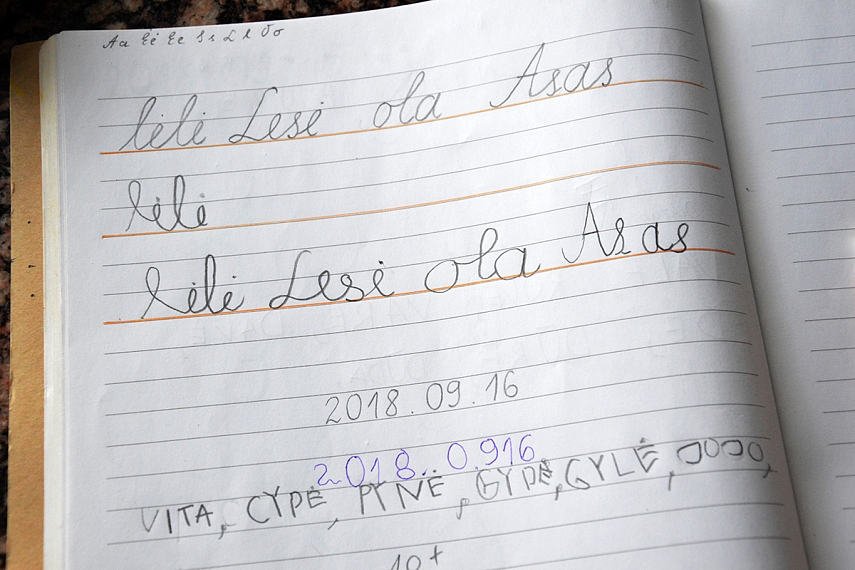 Aa Ėė Ee Ss Ll Oo
lėlė Lesė ola Asas
lėlė
lėlė Lesė ola Asas
2018.09.16
2.018..0.916.
VITA, CYPĖ, PYNĖ, GYPĖ, GYLĖ, JOJO,
10+